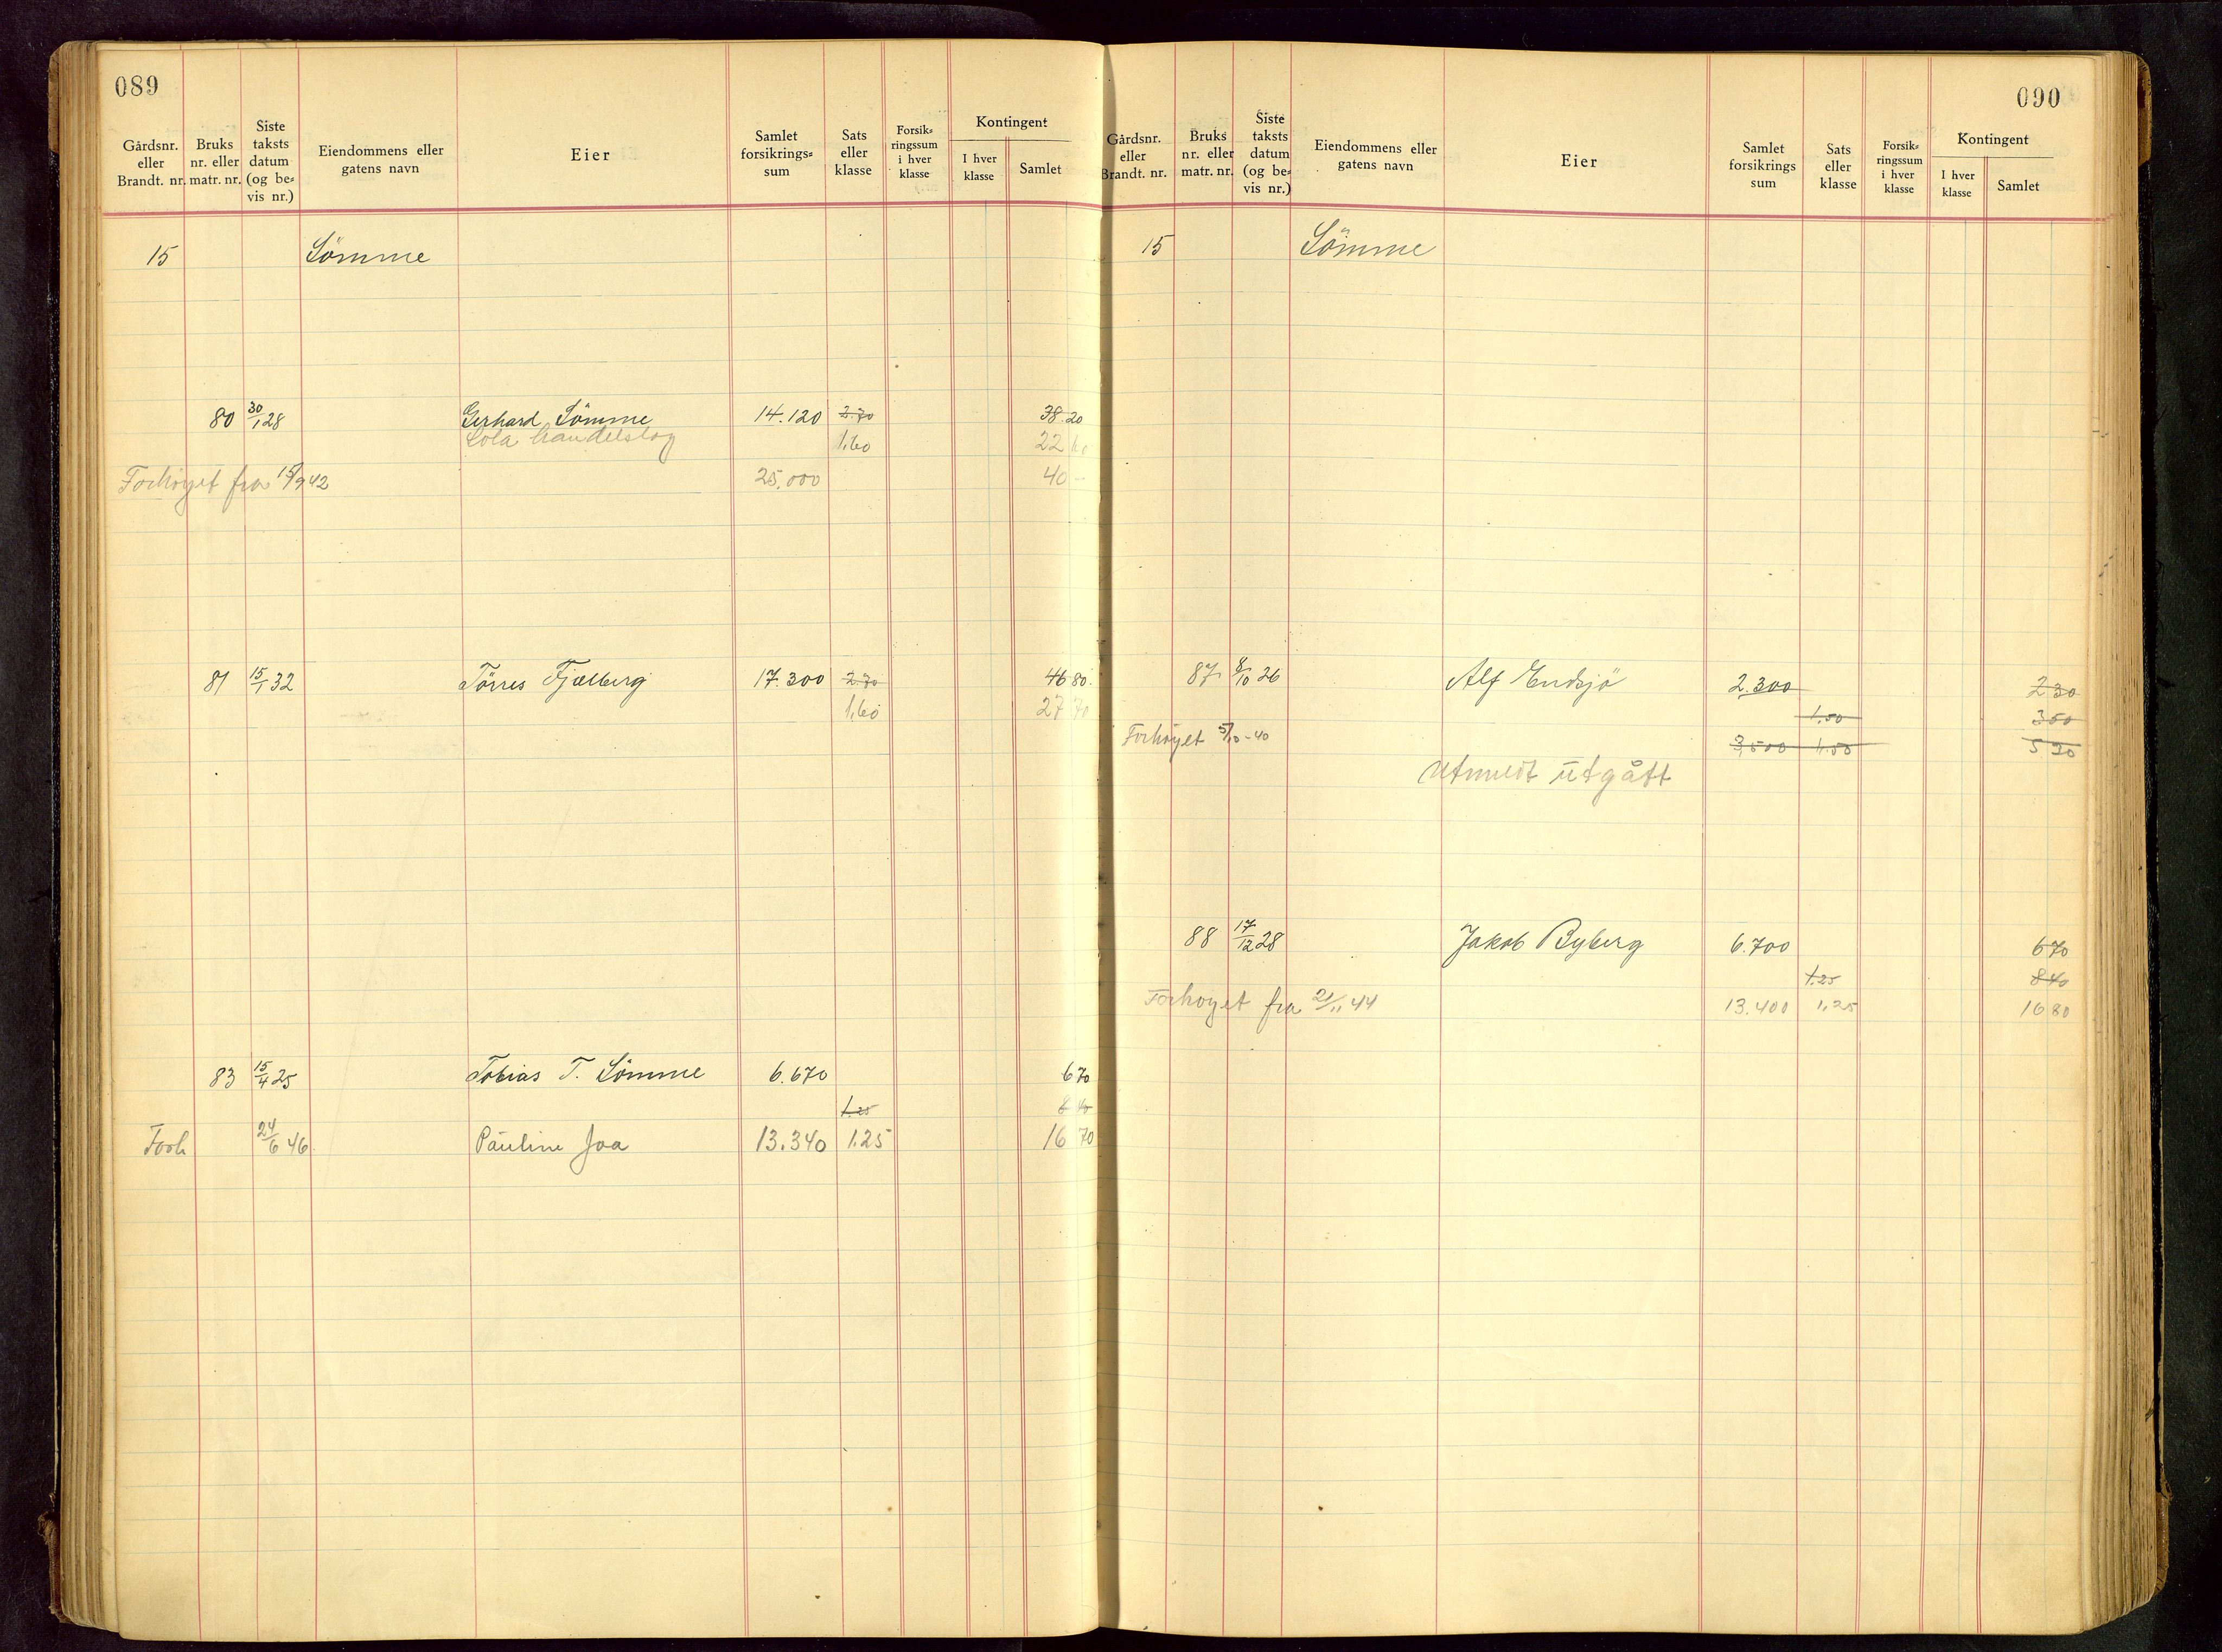 089
Gårdsnr. eller Brandt. nr. Bruks nr. eller matr. nr. Siste taksts datum (og be= vis nr.) Eiendommens eller gatens navn Eier Samlet forsikrings= sum Sats eller klasse Forsik= ringssum i hver klasse Kontingent I hver klasse Samlet
15 Sömme
80 30/1 28 Gerhard Sömme 14.120 2.70 38.20
Sola handelslag 1,60 22 60
Forhöyet fra 15/9 42 25.000 40 -
81 15/1 32 Törres Fjælberg 17.300 2.70 46 80
1,60 27 70
83 15/4 25 Tobias T. Sömme 6.670 6 70
1.25 8 40
Forh 24/6 46 Pauline Joa 13.340 1.25 16 70
090
Gårdsnr. eller Brandt. nr. Bruks nr. eller matr. nr. Siste taksts datum (og be= vis nr.) Eiendommens eller gatens navn Eier Samlet forsikrings sum Sats eller klasse Forsik= ringssum i hver klasse Kontingent I hver klasse Samlet
15 Sömme
87 8/10 26 Alf Endsjö 2.300 2 30
1.50 3 50
Forhöyet 5/10-40 3,500 1.50 5 20
Utmeldt utgått
88 17/12 28 Jakob Byberg 6.700 6 70
1.25 8 40
Forhöyet fra 21/11 44 13.400 1,25 16 80